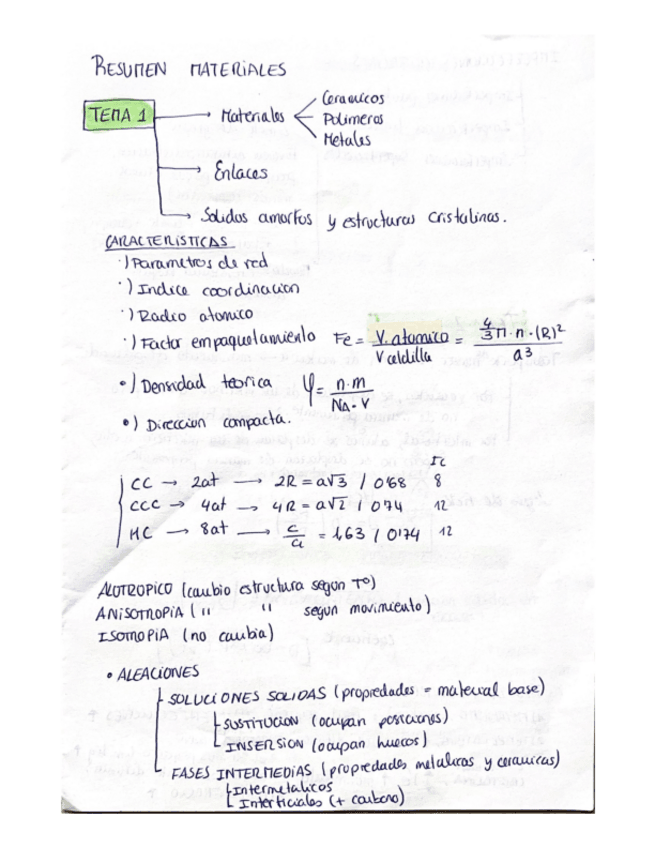 RESUMEN MATERIALES
TEMA 1 → Materiales
Ceramicos
Polimeros
Metales
→ Enlaces
→ Solidos amorfos y estructuras cristalinas.
CARACTERISTICAS
·) Parametros de red
·) Indice coordinacion
·) Radio atomico
·) Factor empaquetamiento Fe = V. atomico / V celdilla = 4/3 Π · n · (R)² / a³
•) Densidad teorica φ = n · m / NA · V
•) Direccion compacta.
Ic
CC → 2at → 2R = a√3 / 0'68 8
CCC → 4at → 4R = a√2 / 0'74 12
HC → 8at → c/a = 1,63 / 0'74 12
ALOTROPICO (cambio estructura segun Tº)
ANISOTROPIA ( " " segun movimiento)
ISOTROPIA (no cambia)
• ALEACIONES
SOLUCIONES SOLIDAS (propiedades = material base)
SUSTITUCION (ocupan posiciones)
INSERSION (ocupan huecos)
FASES INTERMEDIAS (propiedades metalicas y ceramicas)
Intermetalicos
Intersticiales (+ carbono)